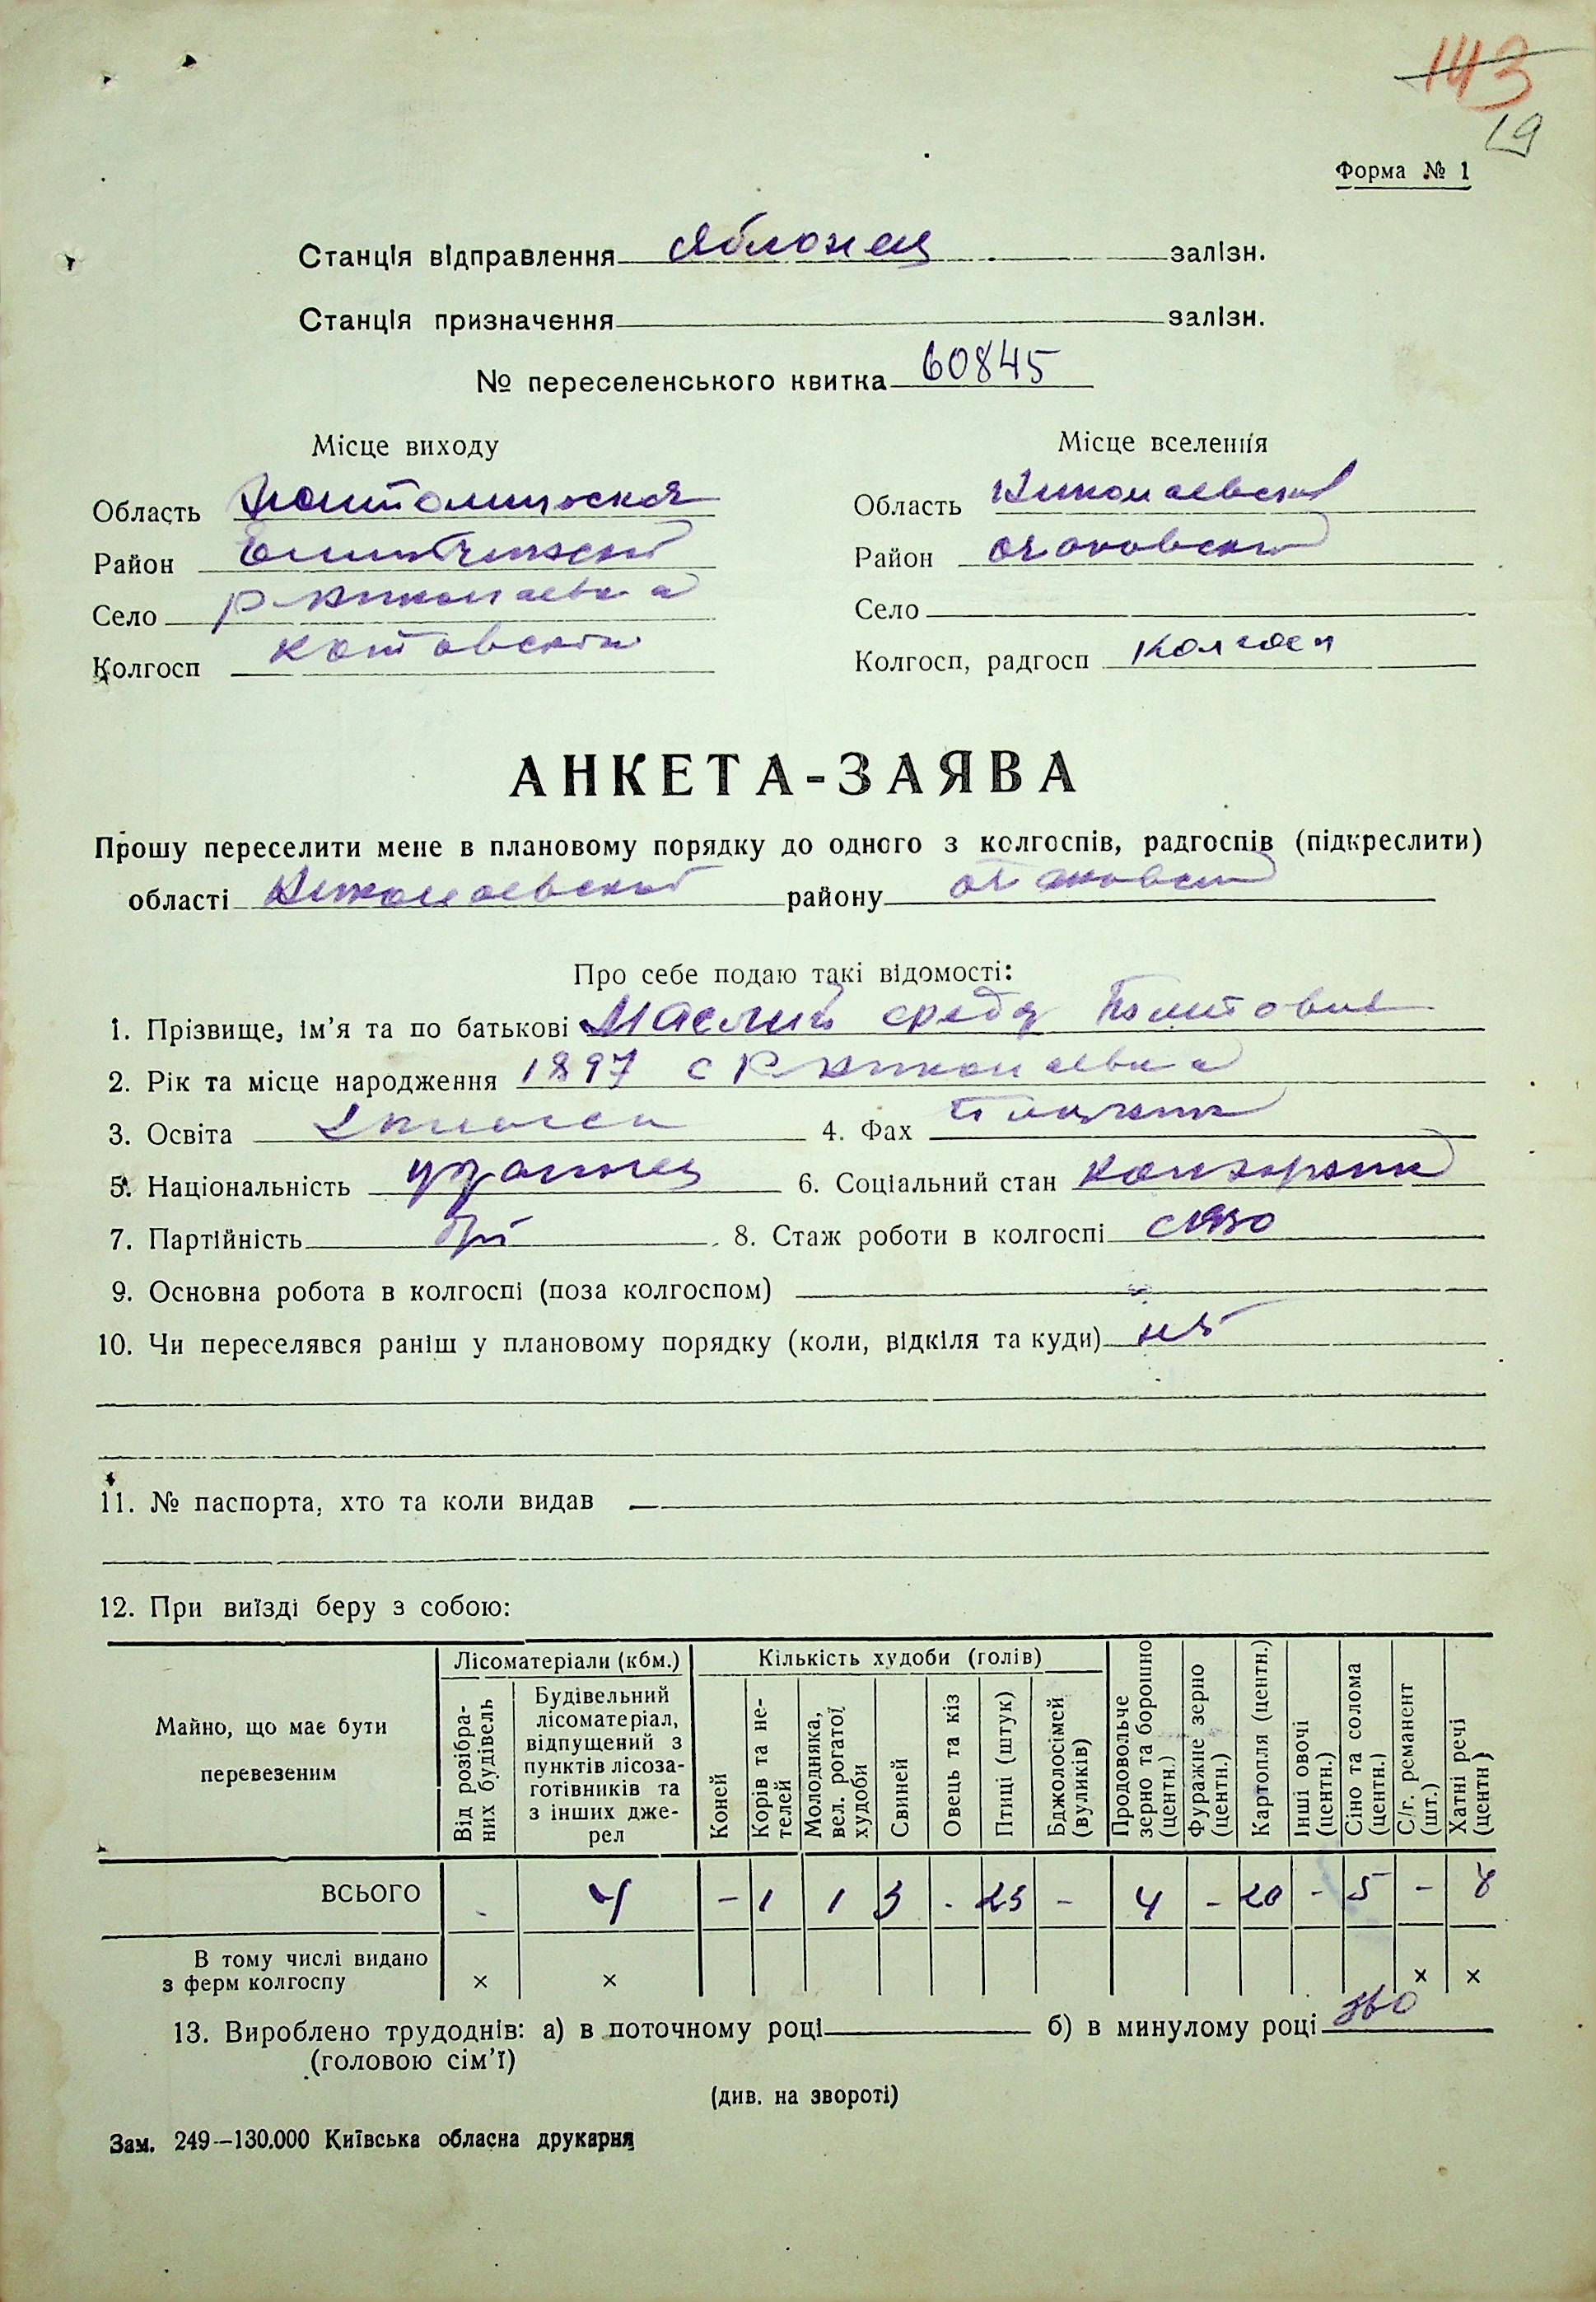 143
19
Форма № 1
Станція відправлення Яблонец залізн.
Станція призначення залізн.
№ переселенського квитка 60845
Місце виходу
Місце вселення
Область Житомирская
Область Николаевский
Район Емильчинский
Район Очаковский
Село Р-Николаевка
Село
Колгосп Котовского
Колгосп, радгосп Колгосп
АНКЕТА-ЗАЯВА
Прошу переселити мене в плановому порядку до одного з колгоспів, радгоспів (підкреслити)
області Николаевский району Очаковский
Про себе подаю такі відомості:
1. Прізвище, ім’я та по батькові
2. Рік та місце народження 1897 с Р Николаевка
3. Освіта 4. Фах
5. Національність украинец 6. Соціальний стан колхозник
7. Партійність б/п 8. Стаж роботи в колгоспі с 1930
9. Основна робота в колгоспі (поза колгоспом)
10. Чи переселявся раніш у плановому порядку (коли, відкіля та куди) нет
11. № паспорта, хто та коли видав
12. При виїзді беру з собою:
Майно, що має бути перевезеним
Лісоматеріали (кбм.)
Від розібраних будівель
Будівельний лісоматеріал, відпущений з пунктів лісозаготівників та з інших джерел
Кількість худоби (голів)
Коней
Корів та нетелей
Молодняка, вел. рогатої худоби
Свиней
Овець та кіз
Птиці (штук)
Бджолосімей (вуликів)
Продовольче зерно та борошно (центн.)
Фуражне зерно (центн.)
Картопля (центн.)
Інші овочі (центн.)
Сіно та солома (центн.)
С/г. реманент (шт.)
Хатні речі (центн)
ВСЬОГО - 4 - 1 1 3 - 25 - 4 - 20 - 5 - 8
В тому числі видано
з ферм колгоспу × × × ×
13. Вироблено трудоднів: а) в поточному році б) в минулому році
(головою сім’ї)
(див. на звороті)
Зам. 249—130.000 Київська обласна друкарня